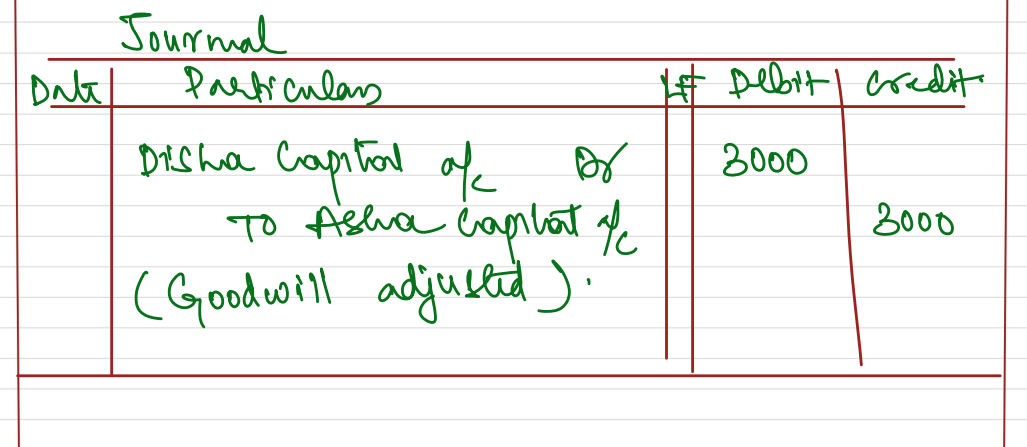 Journal
Date Particulars LF Debit Credit
Disha Capital a/c Dr 3000
To Asha Capital a/c 3000
(Goodwill adjusted).